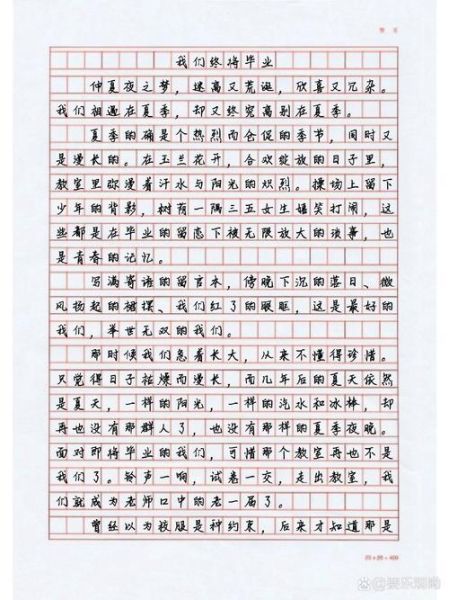 我们终将毕业
仲夏夜之梦，遥高又荒诞，欣喜又冗杂。
我们相遇在夏季，却又终究离别在夏季。
夏季的确是个热烈而仓促的季节，同时又
是漫长的。在玉兰花开，合欢绽放的日子里，
教室里弥漫着汗水与阳光的炽烈。操场上留下
少年的背影，树荫一隅三五女生嬉笑打闹，这
些都是在毕业的留恋下被无限放大的琐事，也
是青春的记忆。
写满寄语的留言本，傍晚下沉的落日、微
风扬起的裙摆、我们红了的眼眶，这是最好的
我们，举世无双的我们。
那时候我们急着长大，从来不懂得珍惜。
只觉得日子枯燥而漫长，而几年后的夏天依然
是夏天，一样的阳光，一样的汽水和冰棒，却
再也没有那群人了，也没有那样的夏季夜晚。
面对即将毕业的我们，可惜那个教室再也不是
我们了。铃声一响，试卷一交，走出教室，我
们就成为老师口中的老一届了。
曾经以为校服是种约束，后来才知道那是
20×20=400